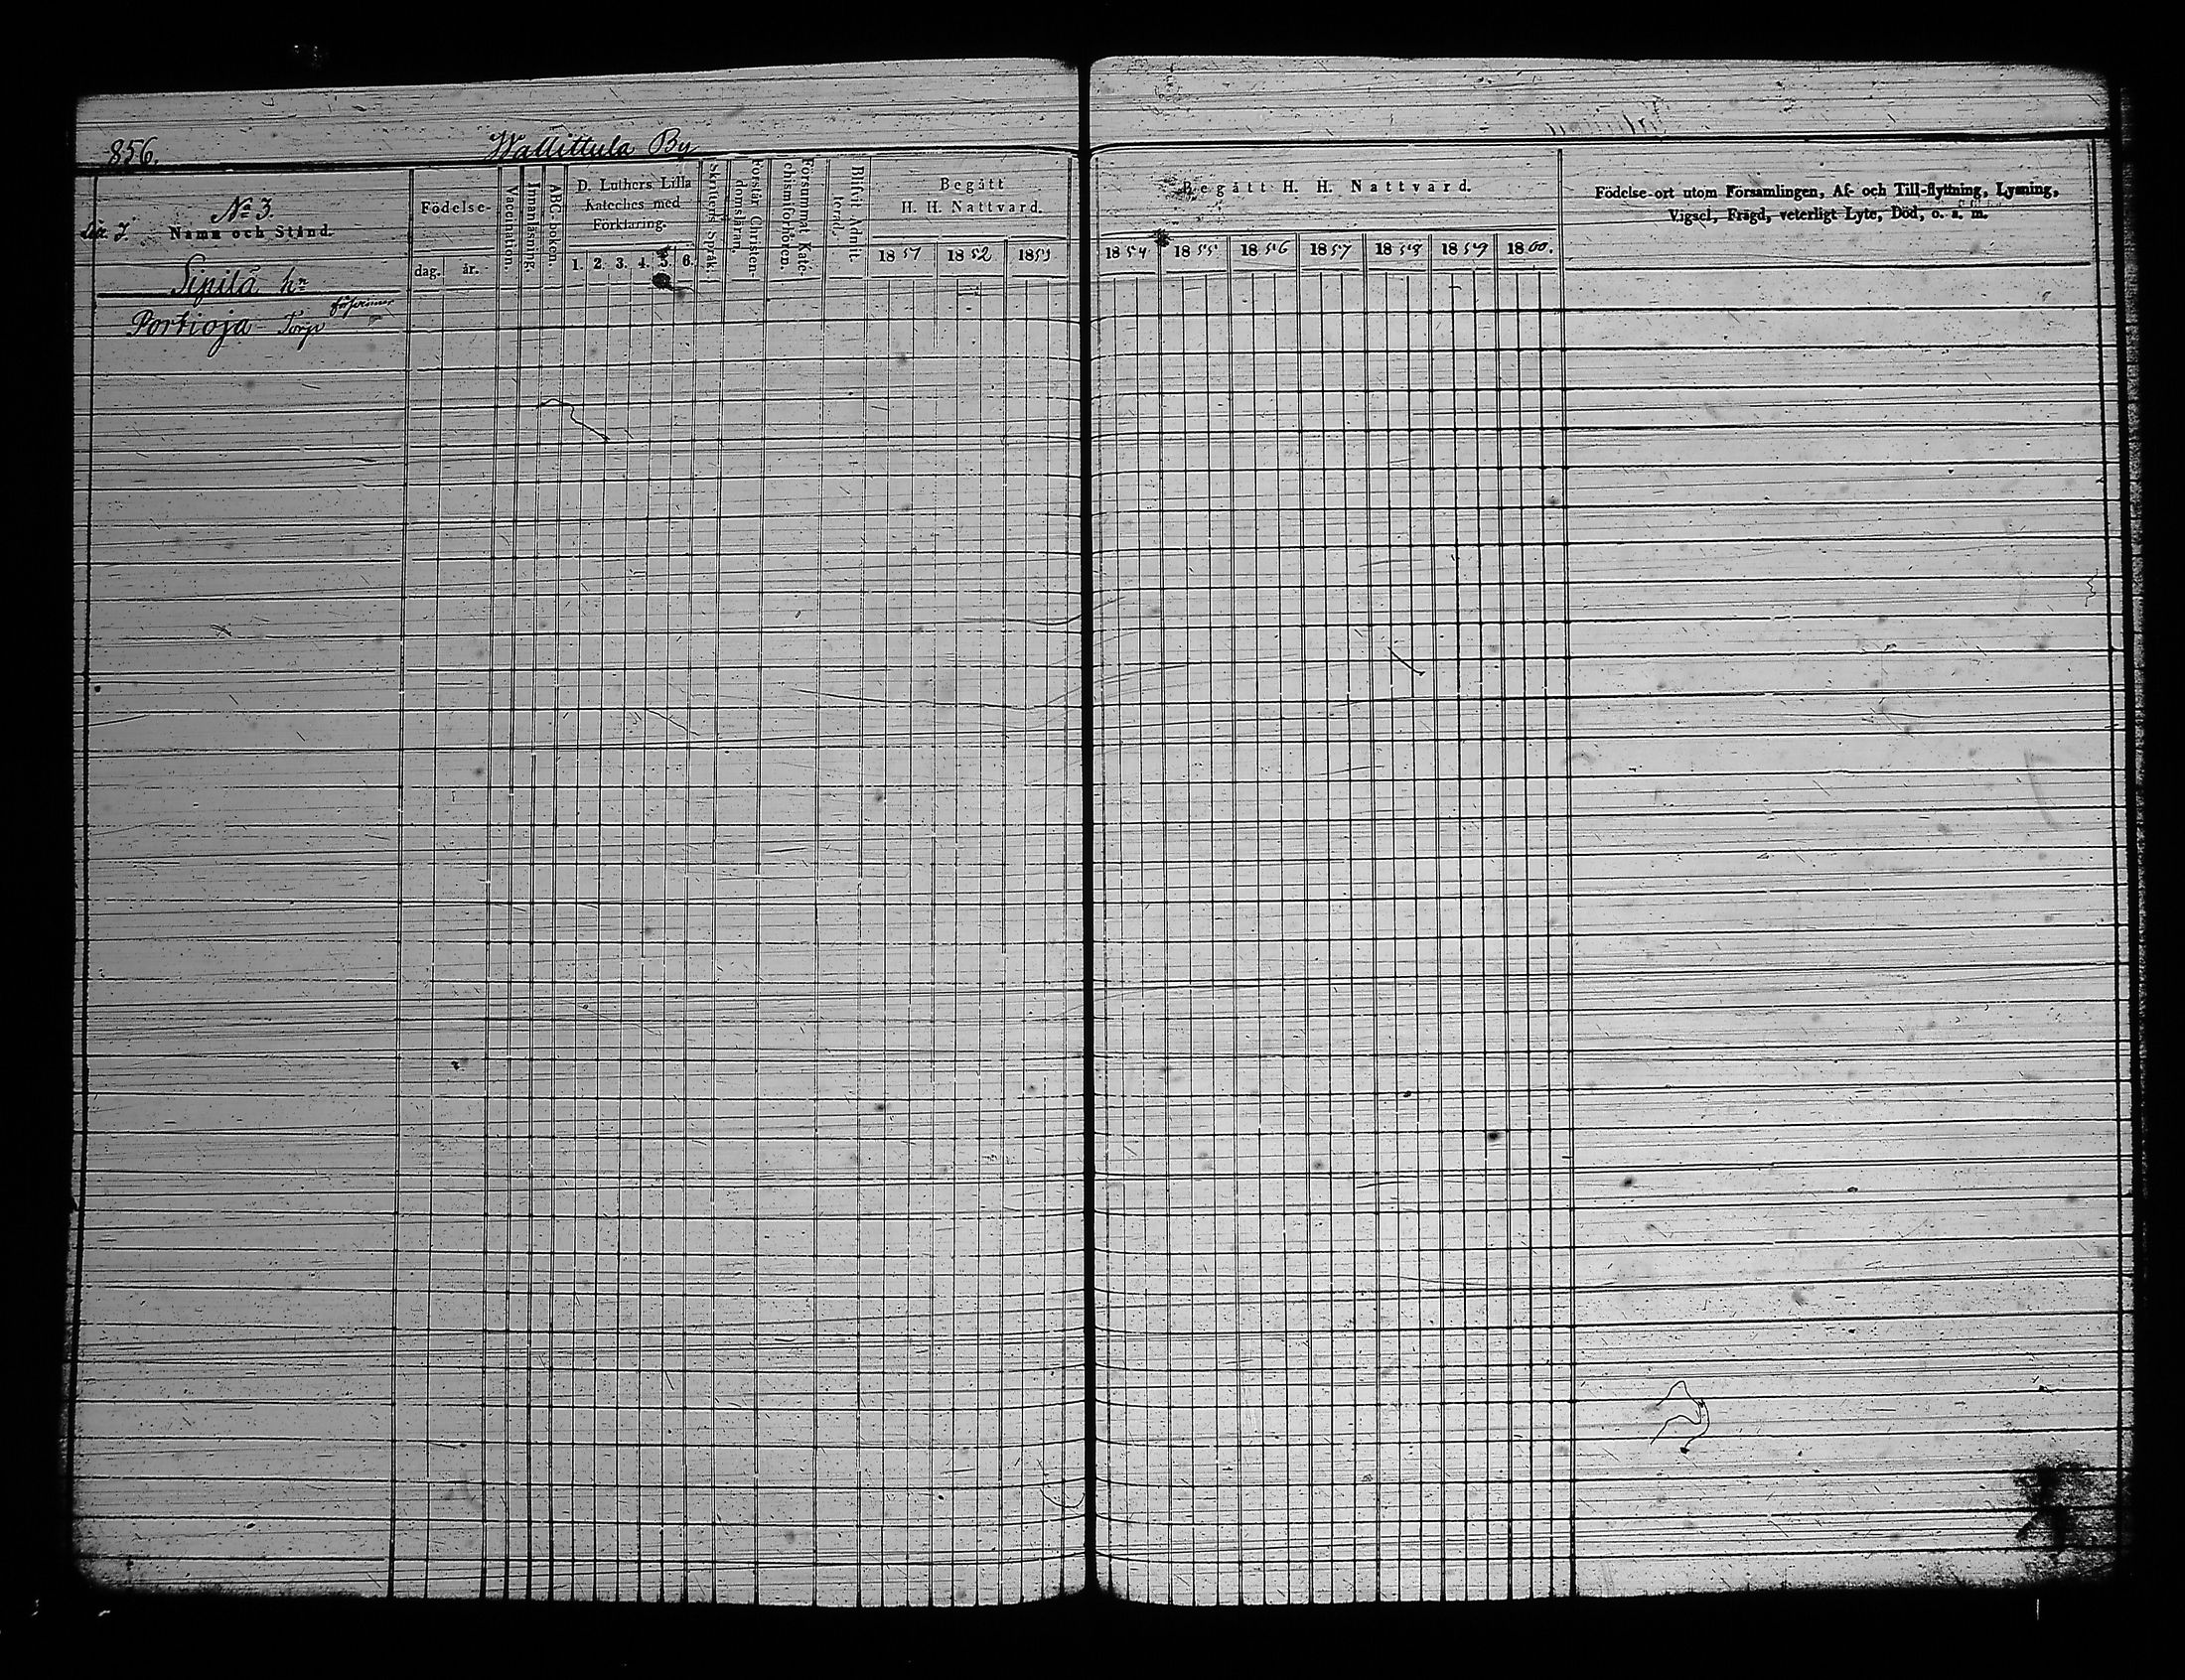 856.
Wallittula By
№ 3.
Namn och Stånd.
Födelse-
dag. år.
Vaccination.
Innanläsning.
ABC-boken.
D. Luthers Lilla
Kateches med
Förklaring.
1. 2. 3. 4. 5. 6.
Skriftens Språk.
Förstår Christen-
domsläran.
Försummat Kate-
chismiförhören.
Blifvit Admit-
terad.
Begått
H. H. Nattvard.
1851 1852 1853
Begått H. H. Nattvard.
1854 1855 1856 1857 1858 1859 1860.
Födelse-ort utom Församlingen, Af- och Till-flyttning, Lysning,
Vigsel, Frägd, veterligt Lyte, Död, o. s. m.
Sipilä hn
Portioja Torp